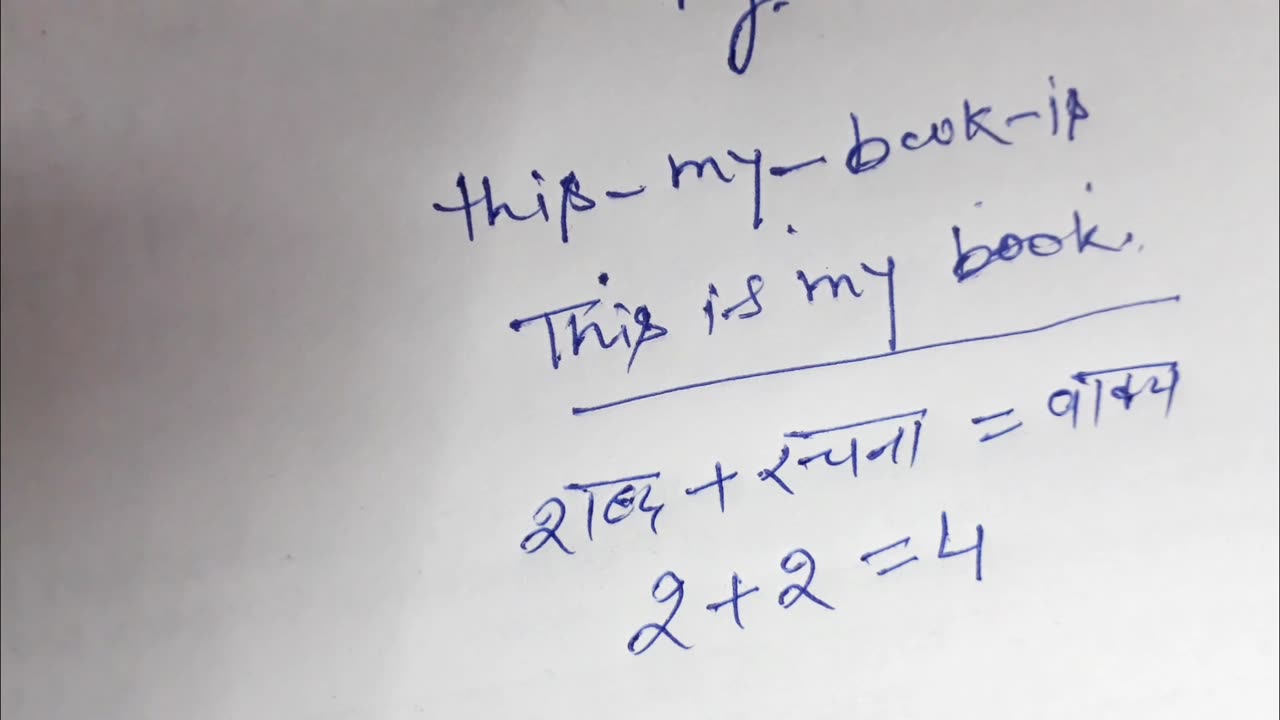 this - my - book - is
This is my book.
शब्द + रचना = वाक्य
2 + 2 = 4